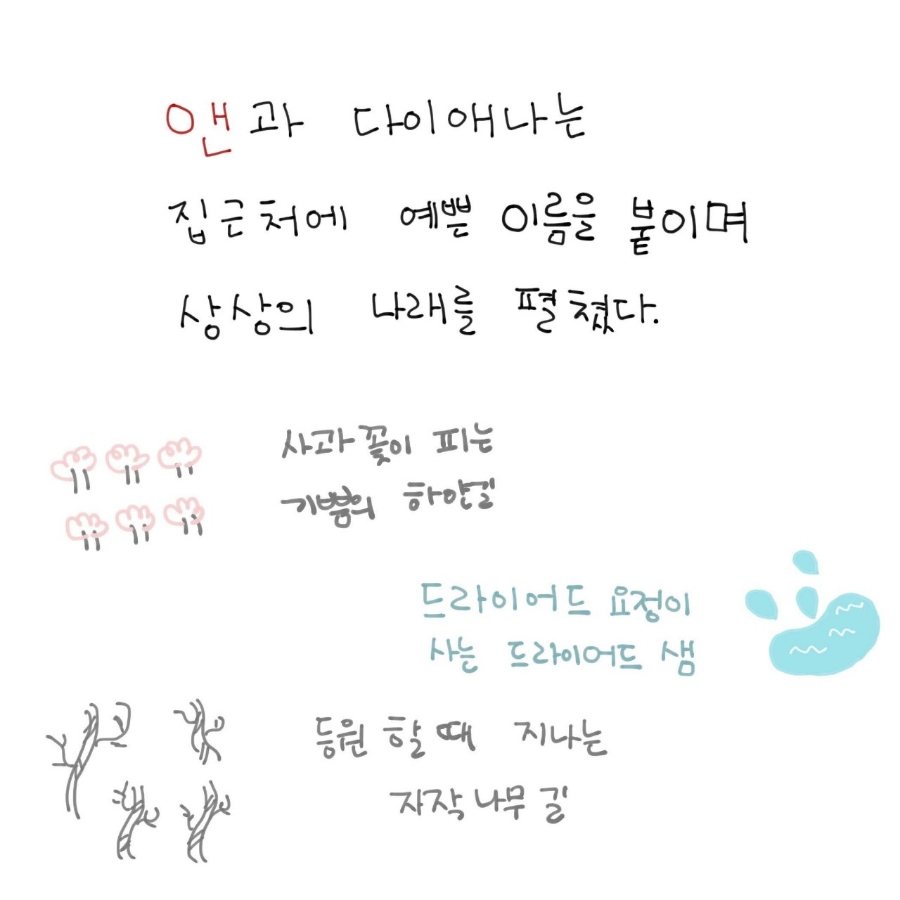 앤과 다이애나는
집근처에 예쁜 이름을 붙이며
상상의 나래를 펼쳤다.
사과꽃이 피는
기쁨의 하얀길
드라이어드 요정이
사는 드라이어드 샘
등원 할 때 지나는
자작나무 길